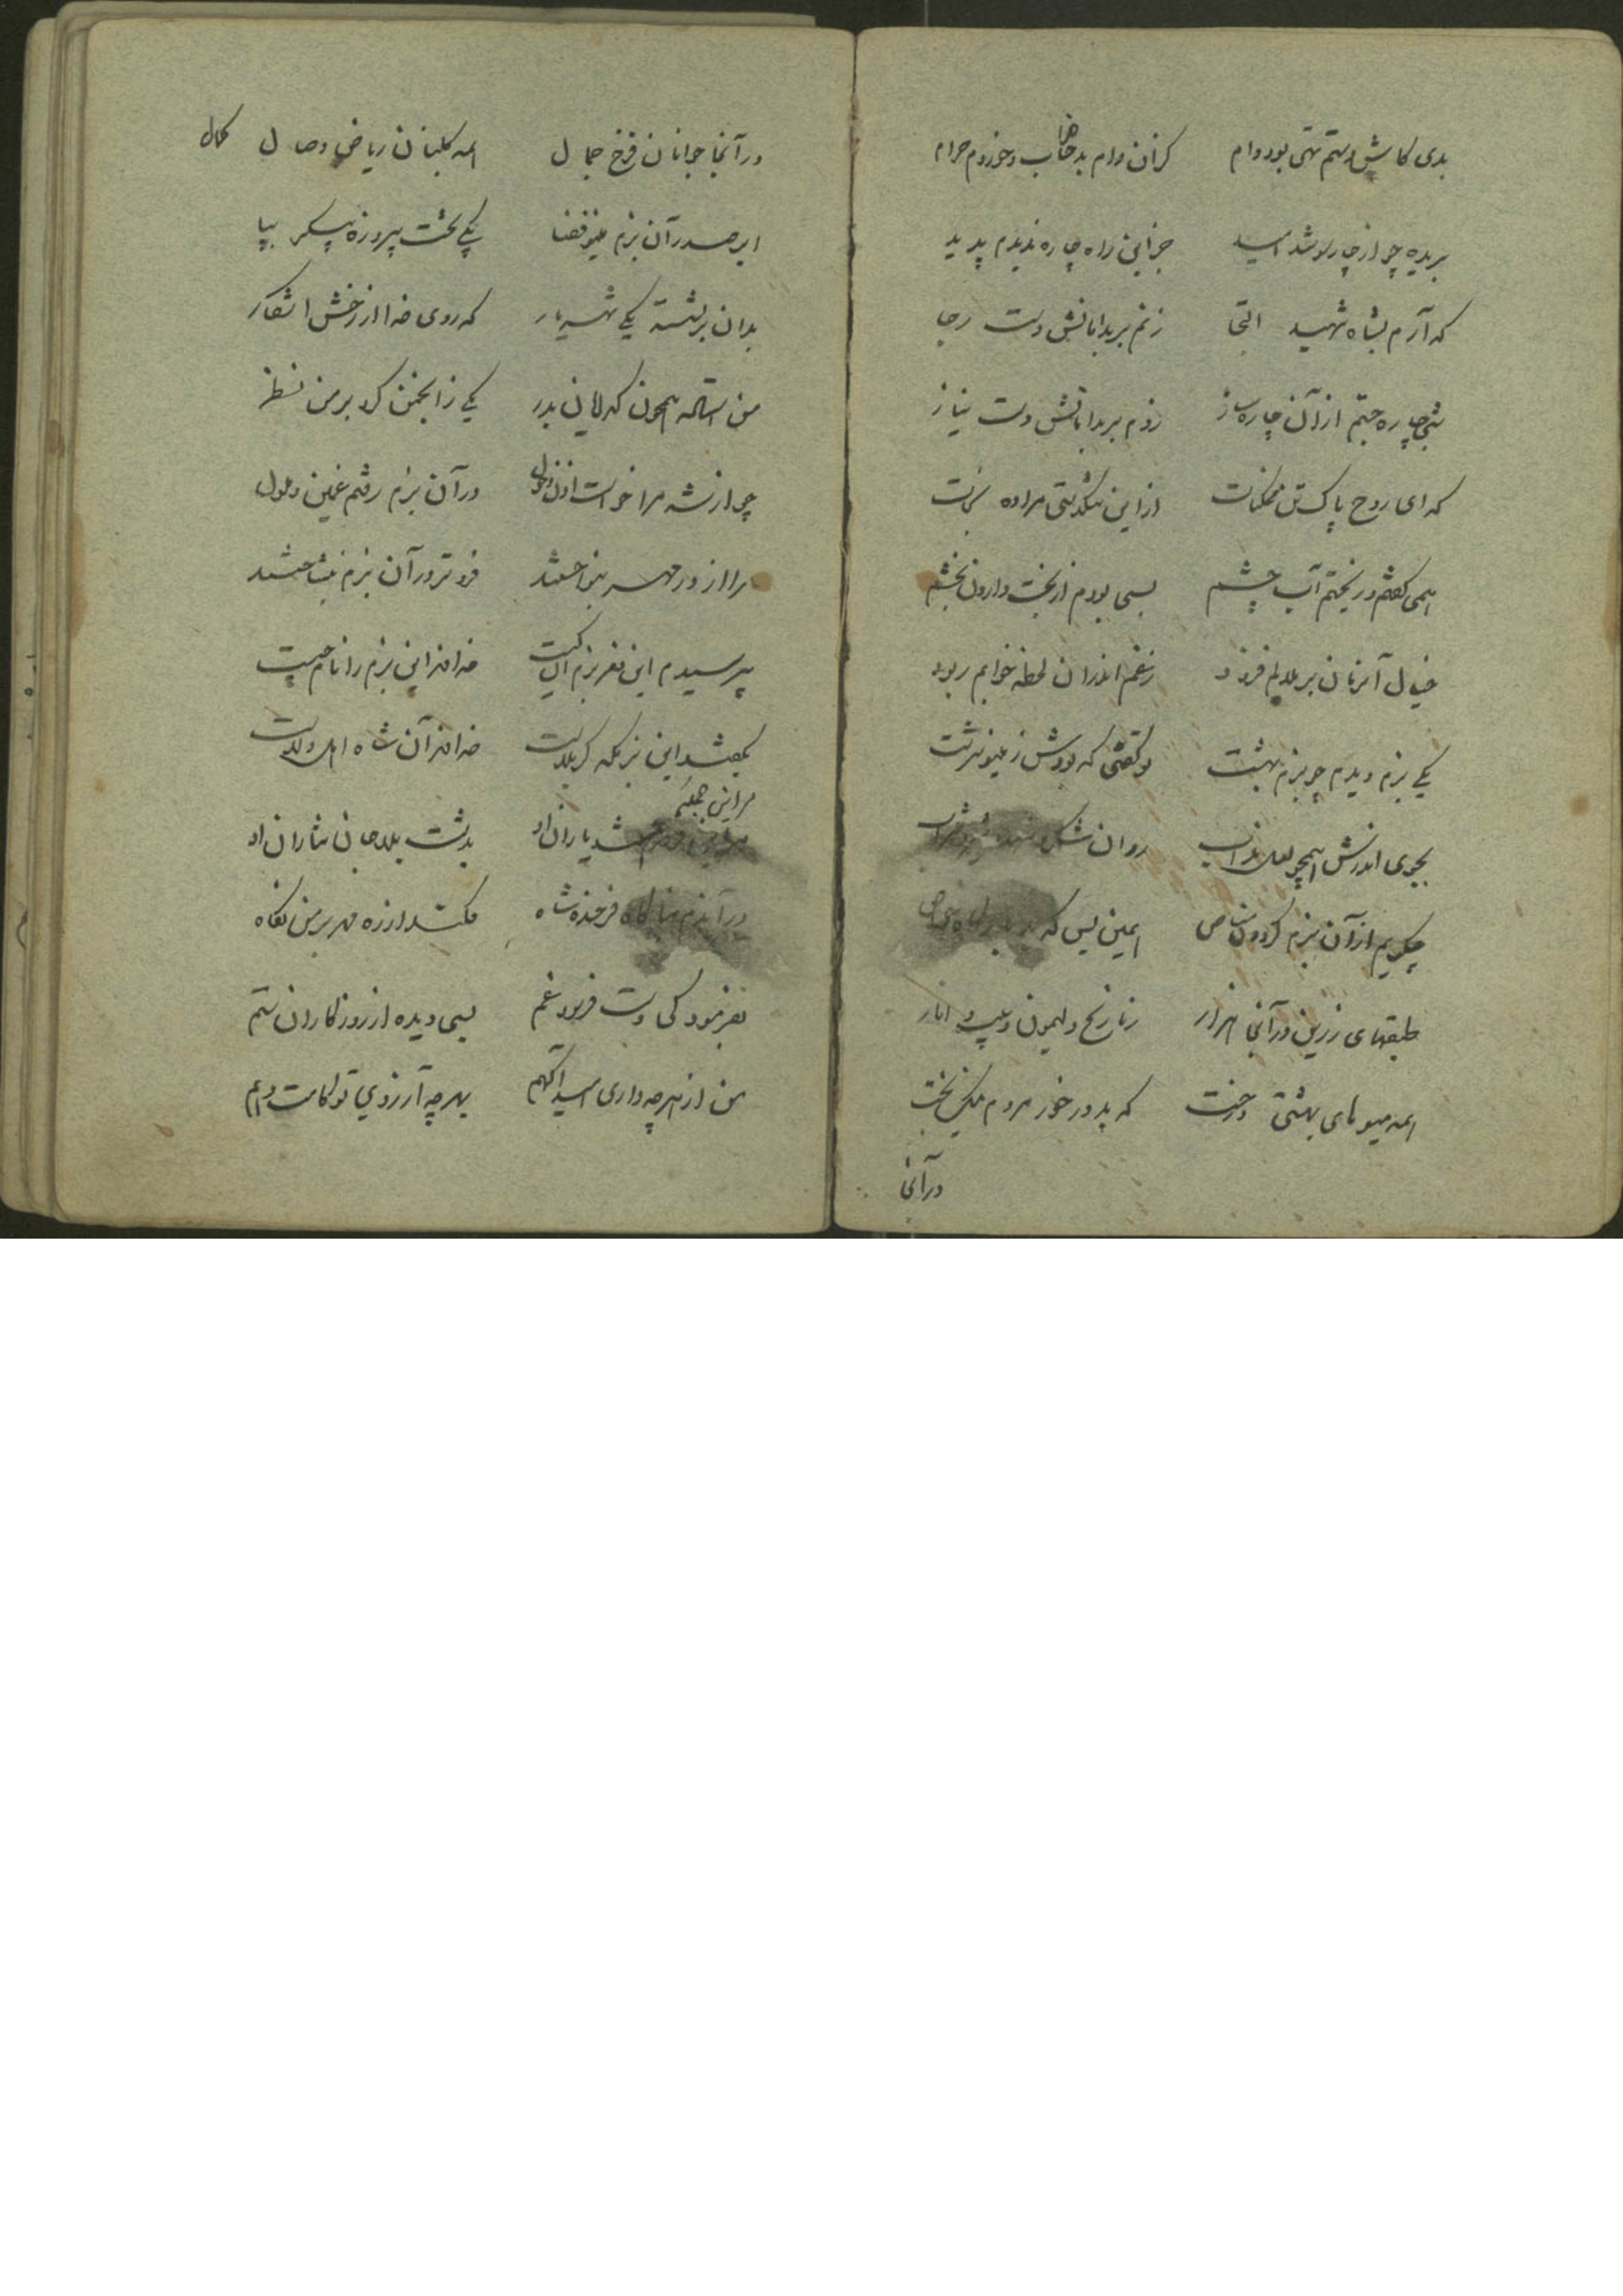 بدی کاش دستم تهی بود دام کزان دام بد خواب و خوردم حرام
بریده چو از چار سو شد امید جز این راه چاره ندیدم پدید
که آرم بشاه شهید التجا زنم بر بدامانش دست رجا
شبی چاره جستم از آن چاره ساز زدم بر بدامانش دست نیاز
که ای روح پاک تن ممکنات از این تنگدستی مرا ده نجات
همی گفتم و ریختم آب چشم بسی بودم از بخت وارون بخشم
خیال آنزمان بر ملالم فزود ز غم اندران لحظه خوابم ربود
یکی بزم دیدم چو بزم بهشت تو گفتی که بودش ز مینو سرشت
بجوی اندرش همچو لعل مذاب روان
چگویم از آن بزم گردون مناص همین بس که
طبقهای زرین در آنجا هزار ز نارنج و لیمون و سیب و انار
همه میوهای بهشتی درخت که بد در خور مردم نیکبخت
در آنجا
در آنجا جوانان فرخ جمال همه گلبنان ریاض وصال کمال
ابر صدر آن بزم مینو فضا یکی تخت پیروزه پیکر بپا
بدان بر نشسته یکی شهریار که روی خدا از رخش آشکار
من استاده همچون گدایان بدر یکی ز انجمن کرد بر من نظر
چو از شه مرا خواست اذن دخول در آن بزم رفتم غمین و ملول
مرا از در مهر بنواختند فروتر در آن بزم بنشاختند
بپرسیدم این نغز بزم آن کیست خداوند این بزم را نام چیست
بگفتند این بزمگه کربلاست خداوند آن شاه اهل ولاست
مر این جملگی
شد یاران او بدشت بلا جان نثاران او
در آندم بناگاه فرخنده شاه فکند از ره مهر بر من نگاه
بفرمود کی دست فرسود غم بسی دیده از روزگاران ستم
من از هرچه داری امید آگهم بهر چه آرزوی تو کامت دهم